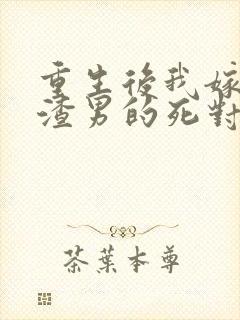 重生後我嫁
渣男的死對
茶葉本尊